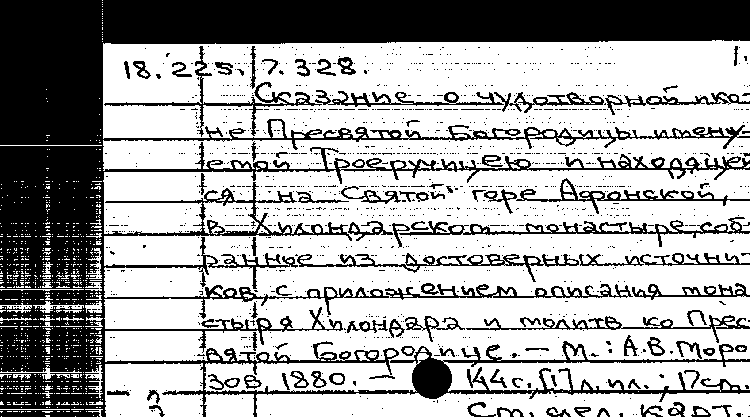 18.225.7.328.
Сказание о чудотворной ико-
не Пресвятой Богородицы имену-
емой Троеручицею и находящей
ся на Святой горе Афонской,
в Хиландарском монастыре, соб-
ранное из достоверных источни
ков, с приложением описания мона
стыря Хиландара и молитв ко Прес-
вятой Богородице. — М.: А.В. Моро
зов, 1880. — 144 с., [1] л. ил.; 17 см.
См. след. карт.